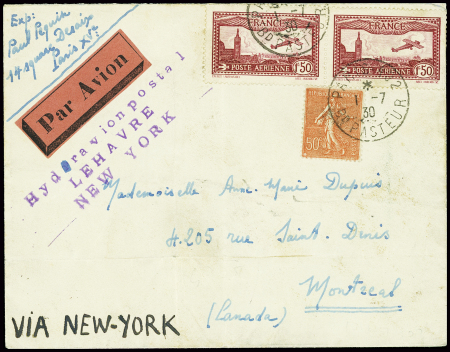 Exp:
Paul Péquin
14 square Desaix
Paris XVe
Par Avion
Hydravion Postal
LE HAVRE
NEW YORK
FRANCE
POSTE AERIENNE 1F50
FRANCE
POSTE AERIENNE 1F50
50c
1 -7
30
PASTEUR
Mademoiselle Anne-Marie Dupuis
H.205 rue Saint-Denis
Montreal
(Canada)
VIA NEW-YORK